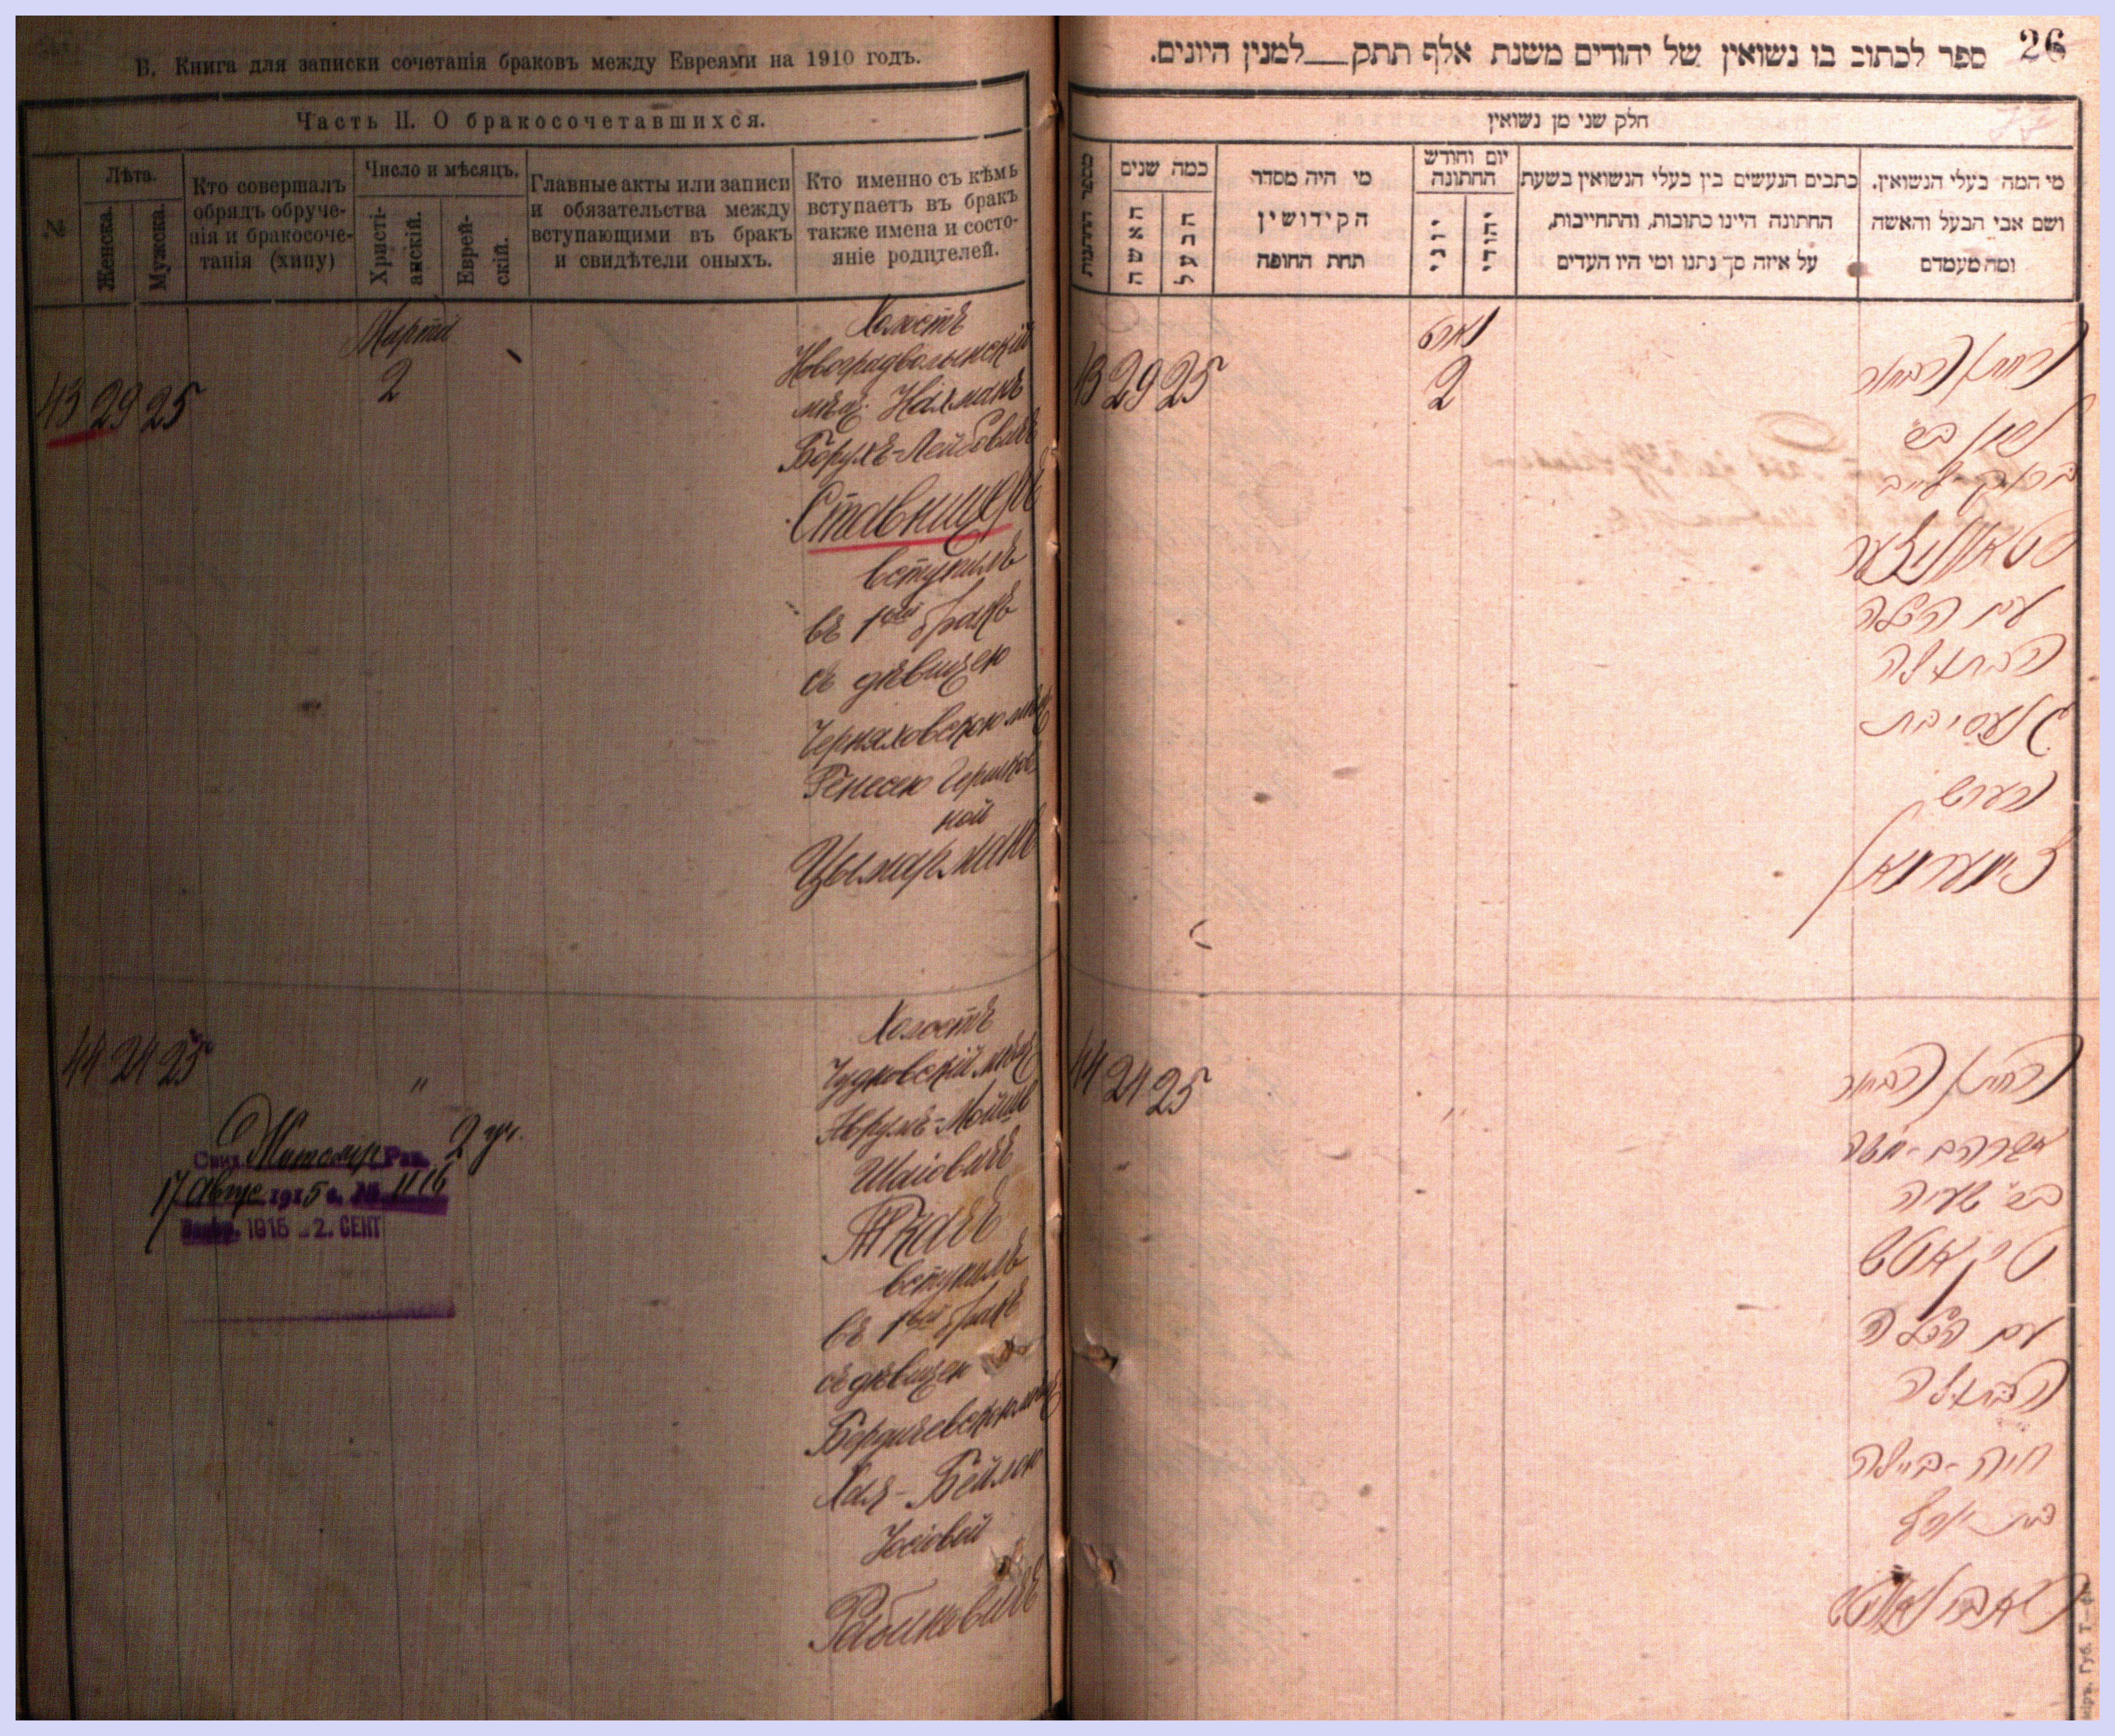 В. Книга для записки сочетанія браковъ между Евреями на 1910 годъ.
Часть II. О бракосочетавшихся.
Лѣта.
Женска.
Мужска.
Кто совершалъ
обрядъ обруче-
нія и бракосоче-
танія (хипу)
Число и мѣсяцъ.
Христі-
анскій.
Еврей-
скій.
Главные акты или записи
и обязательства между
вступающими въ бракъ
и свидѣтели оныхъ.
Кто именно съ кѣмъ
вступаетъ въ бракъ
также имена и состо-
яніе родителей.
43 29 25
Марта
2
Холостъ
Новоградволынскій
мѣщ. Нахманъ
Борухъ-Лейбовичъ
Ставницеръ
вступилъ
въ 1ый бракъ
съ дѣвицею
Черняховскою мѣщ
Генесею Гершков
ной
Цымарманъ
44 24 25
"
Житомир 2 уч.
17 Авгус 1915 г. № 1116
1915 - 2. СЕНТ
Холостъ
Чудновскій мѣщ
Аврумъ-Мойше
Шаіовичъ
Ткачъ
вступилъ
въ 1ый бракъ
съ дѣвицею
Бердичевскою мѣщ
Хая-Бейлою
Іосіовой
Рабиновичъ
26
ספר לכתוב בו נשואין של יהודים משנת אלף תתק__למנין היונים.
חלק שני מן נשואין
מספר החתונות
כמה שנים
האשה
הבעל
מי היה מסדר
הקידושין
תחת החופה
יום וחודש
החתונה
יוני
יהודי
כתבים הנעשים בין בעלי הנשואין בשעת
החתונה היינו כתובות, והתחייבות,
על איזה סך נתנו ומי היו העדים
מי המה בעלי הנשואין.
ושם אבי הבעל והאשה
ומה מעמדם
43 29 25
מארט
2
החתן הבחור
נחמן בר
ברוך-לייב
סטאווניצער
עם הכלה
הבתולה
גענעסי בת
הערש
צימערמאן
44 24 25
"
החתן הבחור
אברהם-משה
בר' ישעיה
טקאטש
עם הכלה
הבתולה
חיה-ביילה
בת יוסף
ראבינאוויטש